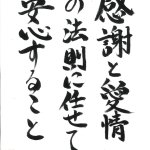 感謝と愛情
の法則に任せて
安心すること